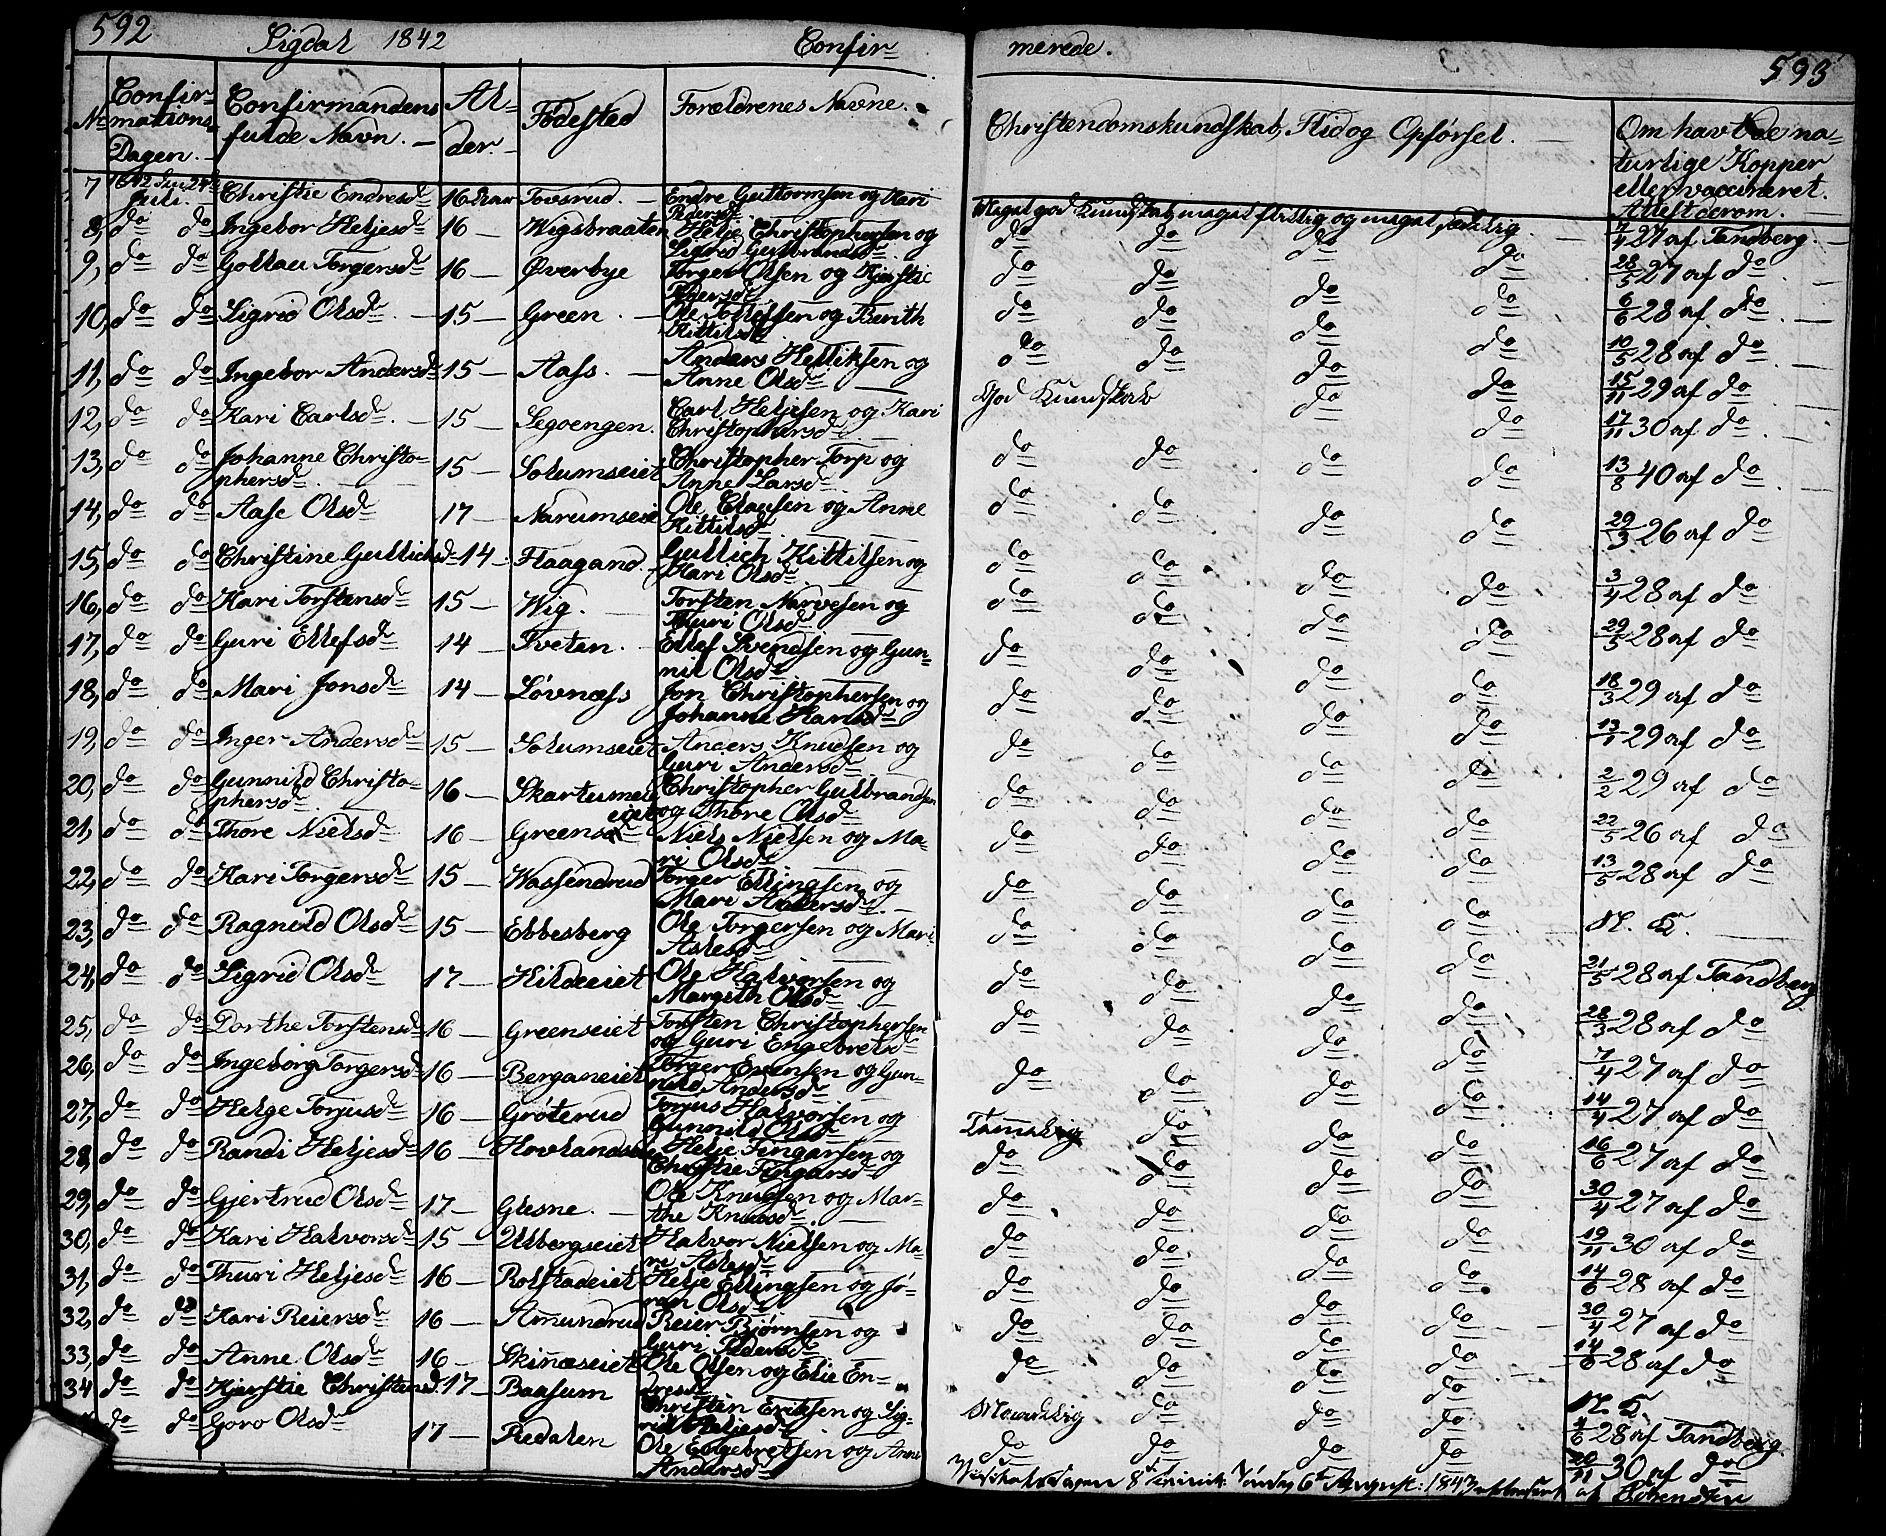 592
Sigdal 1842 Confir=
merede.
593
No
Confir=
mations
Dagen.
Confirmandens
fulde Navn.
Al=
der.
Fødested
Forældrenes Navne.
Christendomskundskab, Flid og Opførsel.
Om havt de na=
turlige Kopper
eller vaccineret.
Attest derom.
7 1842 24de Juli. Christie Endresd 16 Aar Tovsrud. Endre Guttormsen og Kari
Meget god Kundskab, meget flittig og meget sædelig. 7/4 27 af Tandberg.
8, do do Ingebor Heljesd 16 Wigsbraaten Helje Christophersen og
Sigrid Gulbrandsd do do do do 28/5 27 af do
9, do do Gollau Torgersd 16 Øverbye Torger Olsen og Kjerstie
Pedersd do do do do 6/6 28 af do
10, do do Sigrid Olsd 15 Green. Ole Tollefsen og Berith
Kittilsd do do do do 10/5 28 af do
11, do do Ingebor Andersd 15 Aass. Anders Helliksen og
Anne Olsd do do do do 15/11 29 af do
12, do do Kari Carlsd. 15 Segoengen. Carl Heljesen og Kari
Christophersd God Kundskab do do 17/11 30 af do
13, do do Johanne Christo=
phersd. 15 Solumseiet Christopher Torp og
Anne Larsd do do do do 13/8 40 af do
14, do do Aase Olsd 17 Narumseie Ole Clausen og Anne
Kittilsd do do do do 29/3 26 af do
15, do do Christine Gullichsd 14 Flaagand. Gullich Kittilsen og
Kari Olsd do do do do 3/4 28 af do
16, do do Kari Torstensd 15 Wig. Torsten Narvesen og
Thuri Olsd do do do do 29/5 28 af do
17, do do Guri Ellefsd 14 Tveten. Ellef Svendsen og Gun=
nil Olsd do do do do 18/3 29 af do
18, do do Mari Jonsd 14 Løvnæss Jon Christophersen og
Johanne do do do do 13/1 29 af do
19, do do Inger Andersd 15 Solumseiet Anders Knudsen og
Guri Andersd do do do do 2/2 29 af do
20, do do Gunnild Christo=
phersd 16 Skartumeiet Christopher Gulbrandsen
og Thore Olsd do do do do 22/5 26 af do
21, do do Thore Nielsd 16 Niels Nielsen og Ma=
ri Olsd do do do do 13/5 28 af do
22, do do Kari Torgersd 15 Wassendrud Torger Ellingsen og
Mari do do do do N. K.
23, do do Ragnild Olsd 15 Ebbesberg Ole Torgersen og Mari
Aslesd do do do do 21/5 28 af Tandberg
24, do do Sigrid Olsd 17 Hildeeiet Ole Halvorsen og
Margith Olsd do do do do 28/3 28 af do
25, do do Dorthe Torstensd 16 Greenseiet Torsten Christophersen
og Guri Engebretsd do do do do 7/4 27 af do
26, do do Ingeborg Torgersd 16 Berganeiet Torger Evensen og Gun=
nild Andersd do do do do 14/4 27 af do
27, do do Helge Torjusd 16 Grøterud Torjus Halvorsen og
Gunnild Olsd Temmelig do do do 16/6 27 af do
28, do do Randi Heljesd 16 Helje Fingarsen og
Christie Fingarsd do do do do 30/4 27 af do
29, do do Gjertrud Olsd 17 Glesne. Ole Knudsen og Mar=
the Knudsd do do do do 19/11 30 af do
30, do do Kari Halvorsd 15 Ulbergseiet Halvor Nielsen og Ma=
ri Aslesd do do do do 14/6 28 af do
31, do do Thuri Heljesd 16 Rolfstadeiet Helje Ellingsen og Jø=
ran Olsd do do do do 30/4 27 af do
32, do do Kari Reiersd 16 Amundrud Reier Bjørnsen og
Guri Pedersd do do do do 14/6 28 af do
33, do do Anne Olsd 16 Skinæseiet Ole Olsen og Elie En=
dresd do do do do N. K.
34 do do Kjerstie Christensd. 17 Baasum Christen Eriksen og Sig=
rid Heljesd Maadelig do do do 4/6 28 af Tandberg
do do Goro Olsd 17 Redalen Ole Engebretsen og Anne
Andersd do do do do 20/11 30 af do
6te August: 1843 af